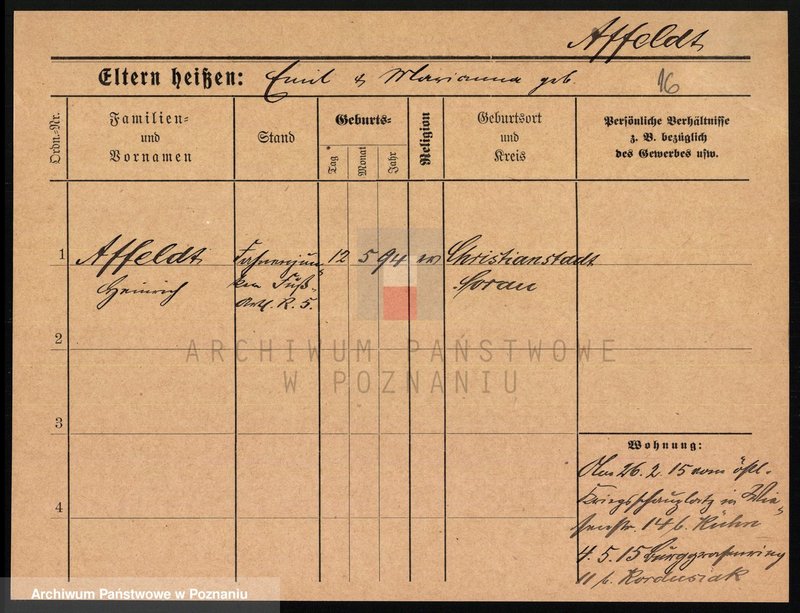 Affeldt
Eltern heißen: Emil & Marianna geb.
16
Ordn.-Nr.
Familien=
und
Vornamen
Stand
Geburts=
Tag
Monat
Jahr
Religion
Geburtsort
und
Kreis
Persönliche Verhältnisse
z. B. bezüglich
des Gewerbes usw.
1 Affeldt Fahnenjun= 12 5 94 ev Christianstadt
Heinrich ker Fuß= Sorau
Artl. R. 5.
2
ARCHIWUM PAŃSTWOWE
W POZNANIU
3
Wohnung:
26. 2. 15 vom östl.
4
Kriegsschauplatz in Wie=
senstr. 14 b. Kühn
4. 5. 15 Burggrafenring
11 b. Kordusiak
Archiwum Państwowe w Poznaniu